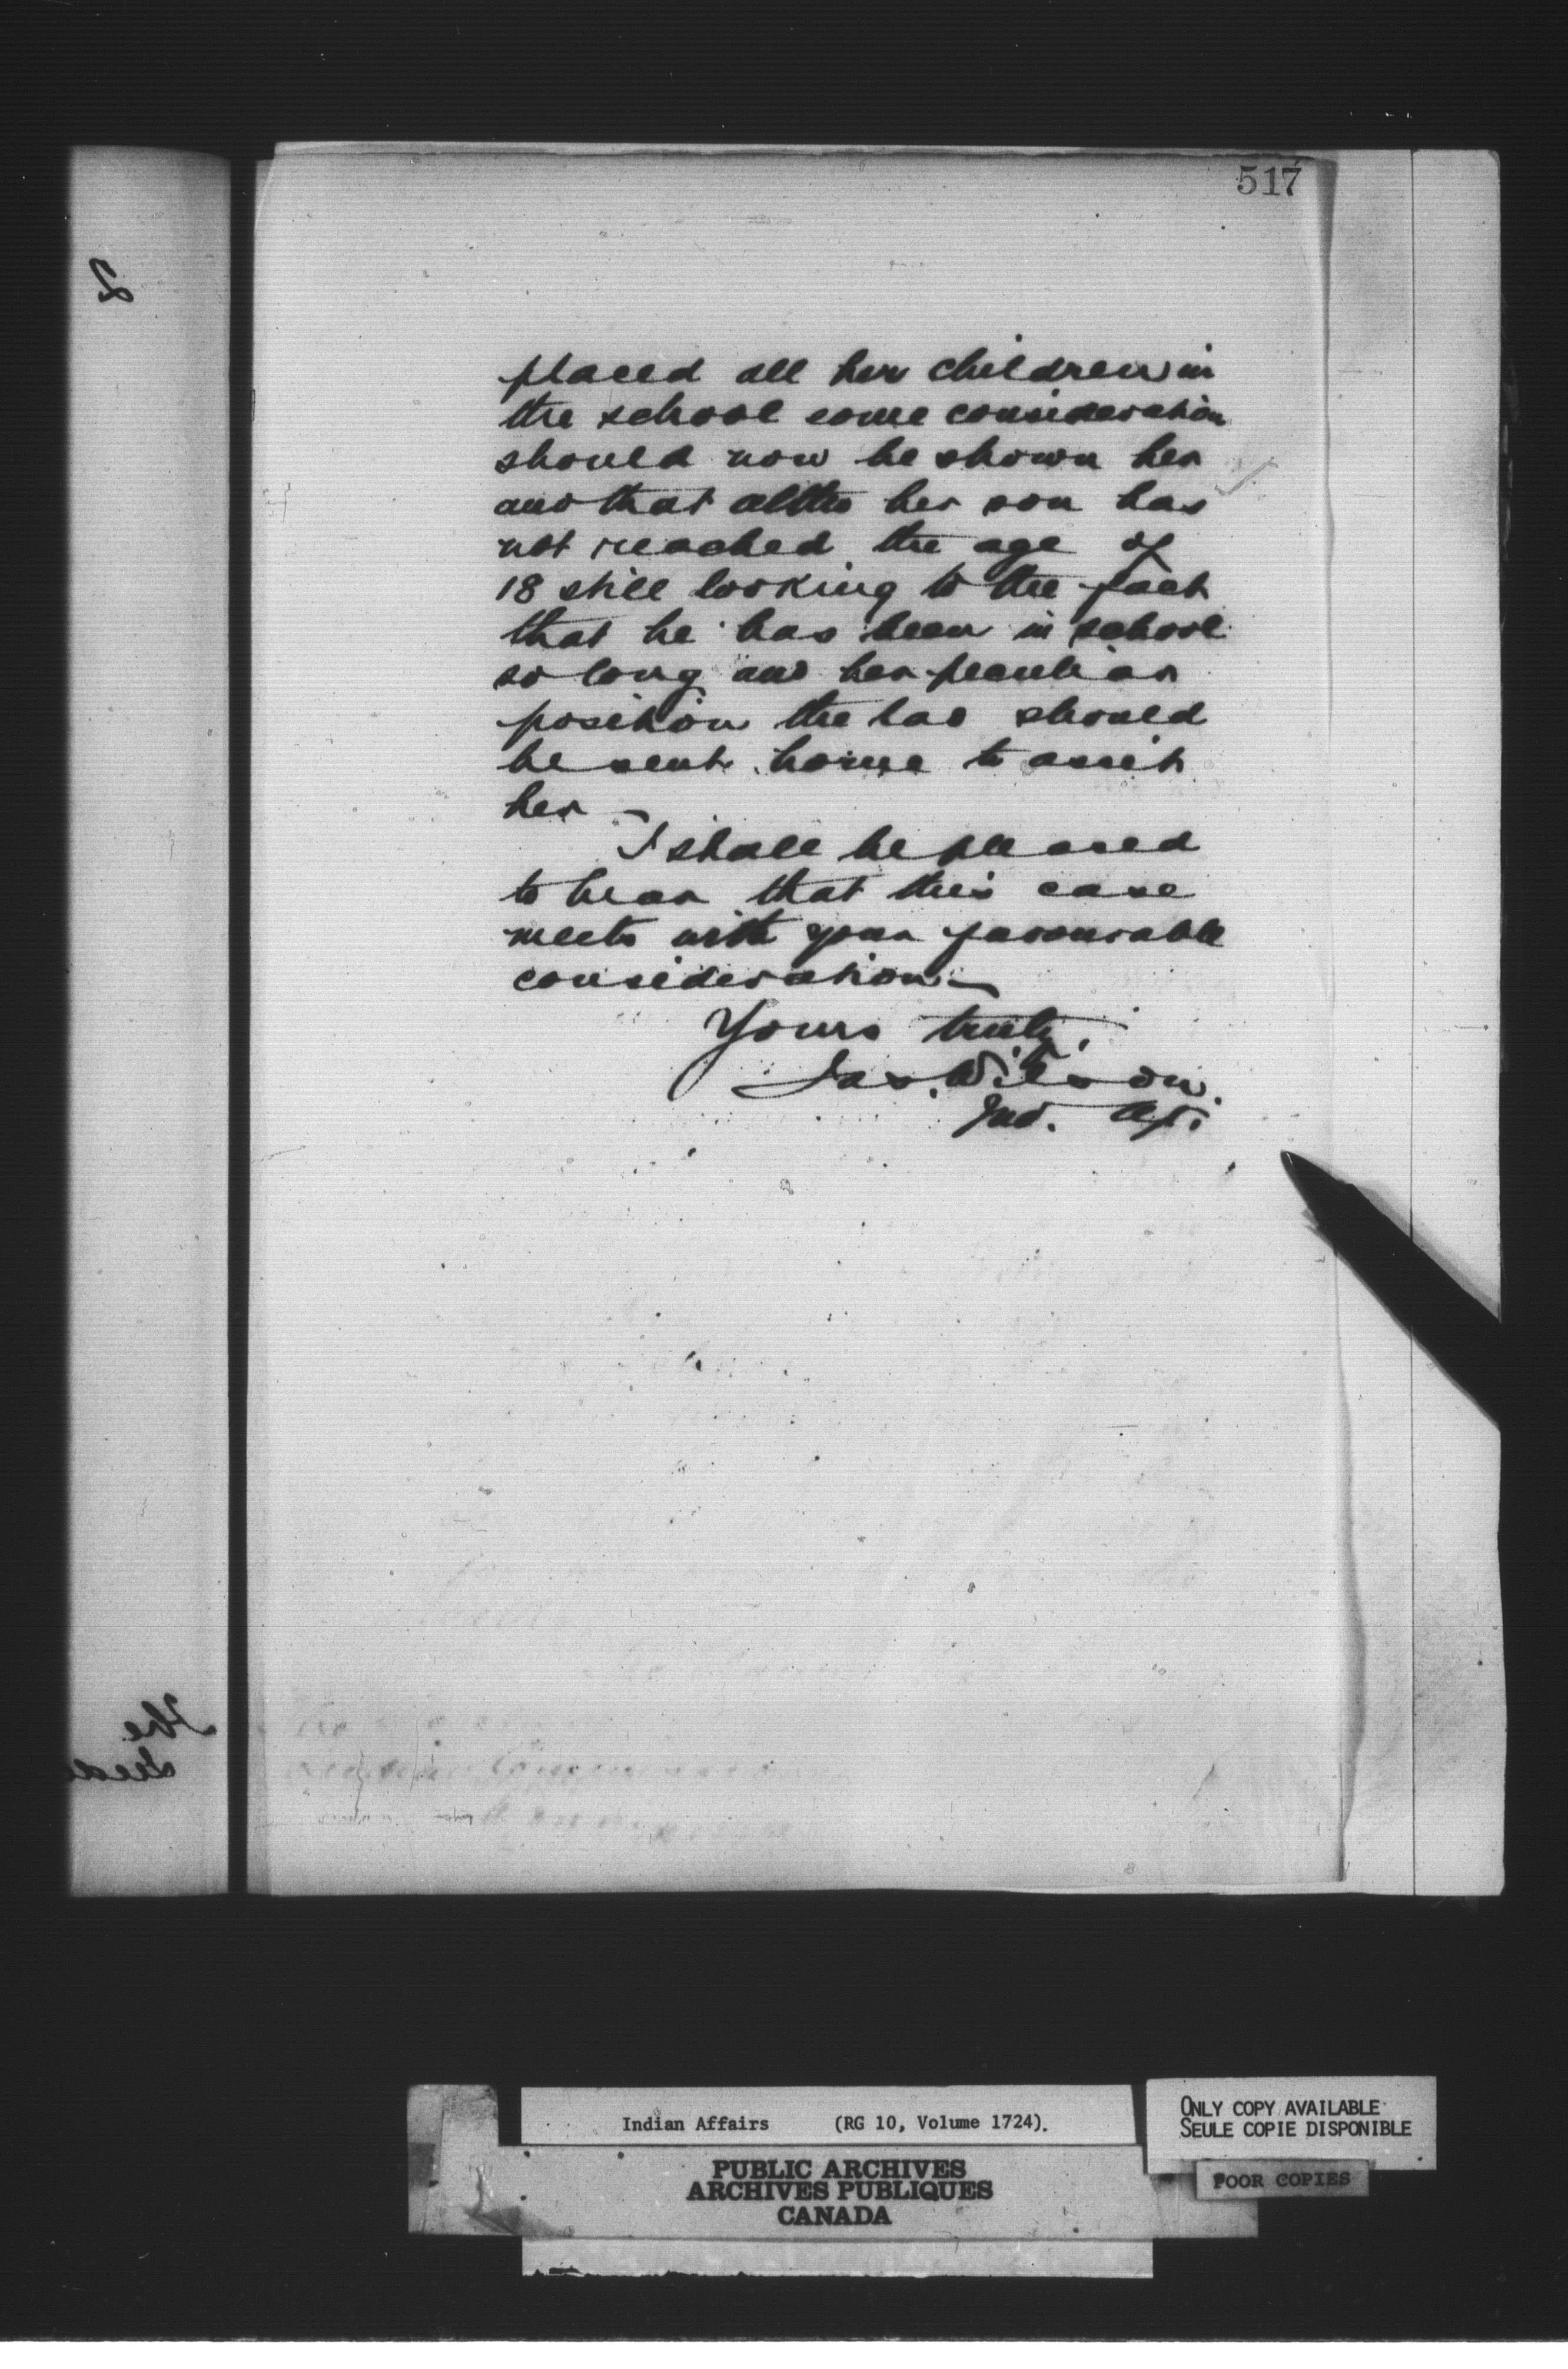 517
placed all her children in
the school some consideration
should now be shown her
and that altho her son has
not reached the age of
18 still looking to the fact
that he has been in school
so long and her peculiar
position the lad should
be sent home to assist
her –
I shall be pleased
to hear that this case
meets with your favourable
consideration –
Yours truly,
Jas. Wilson
Ind. Agt.
2
The
Indian Affairs (RG 10, Volume 1724).
PUBLIC ARCHIVES
ARCHIVES PUBLIQUES
CANADA
ONLY COPY AVAILABLE
SEULE COPIE DISPONIBLE
POOR COPIES